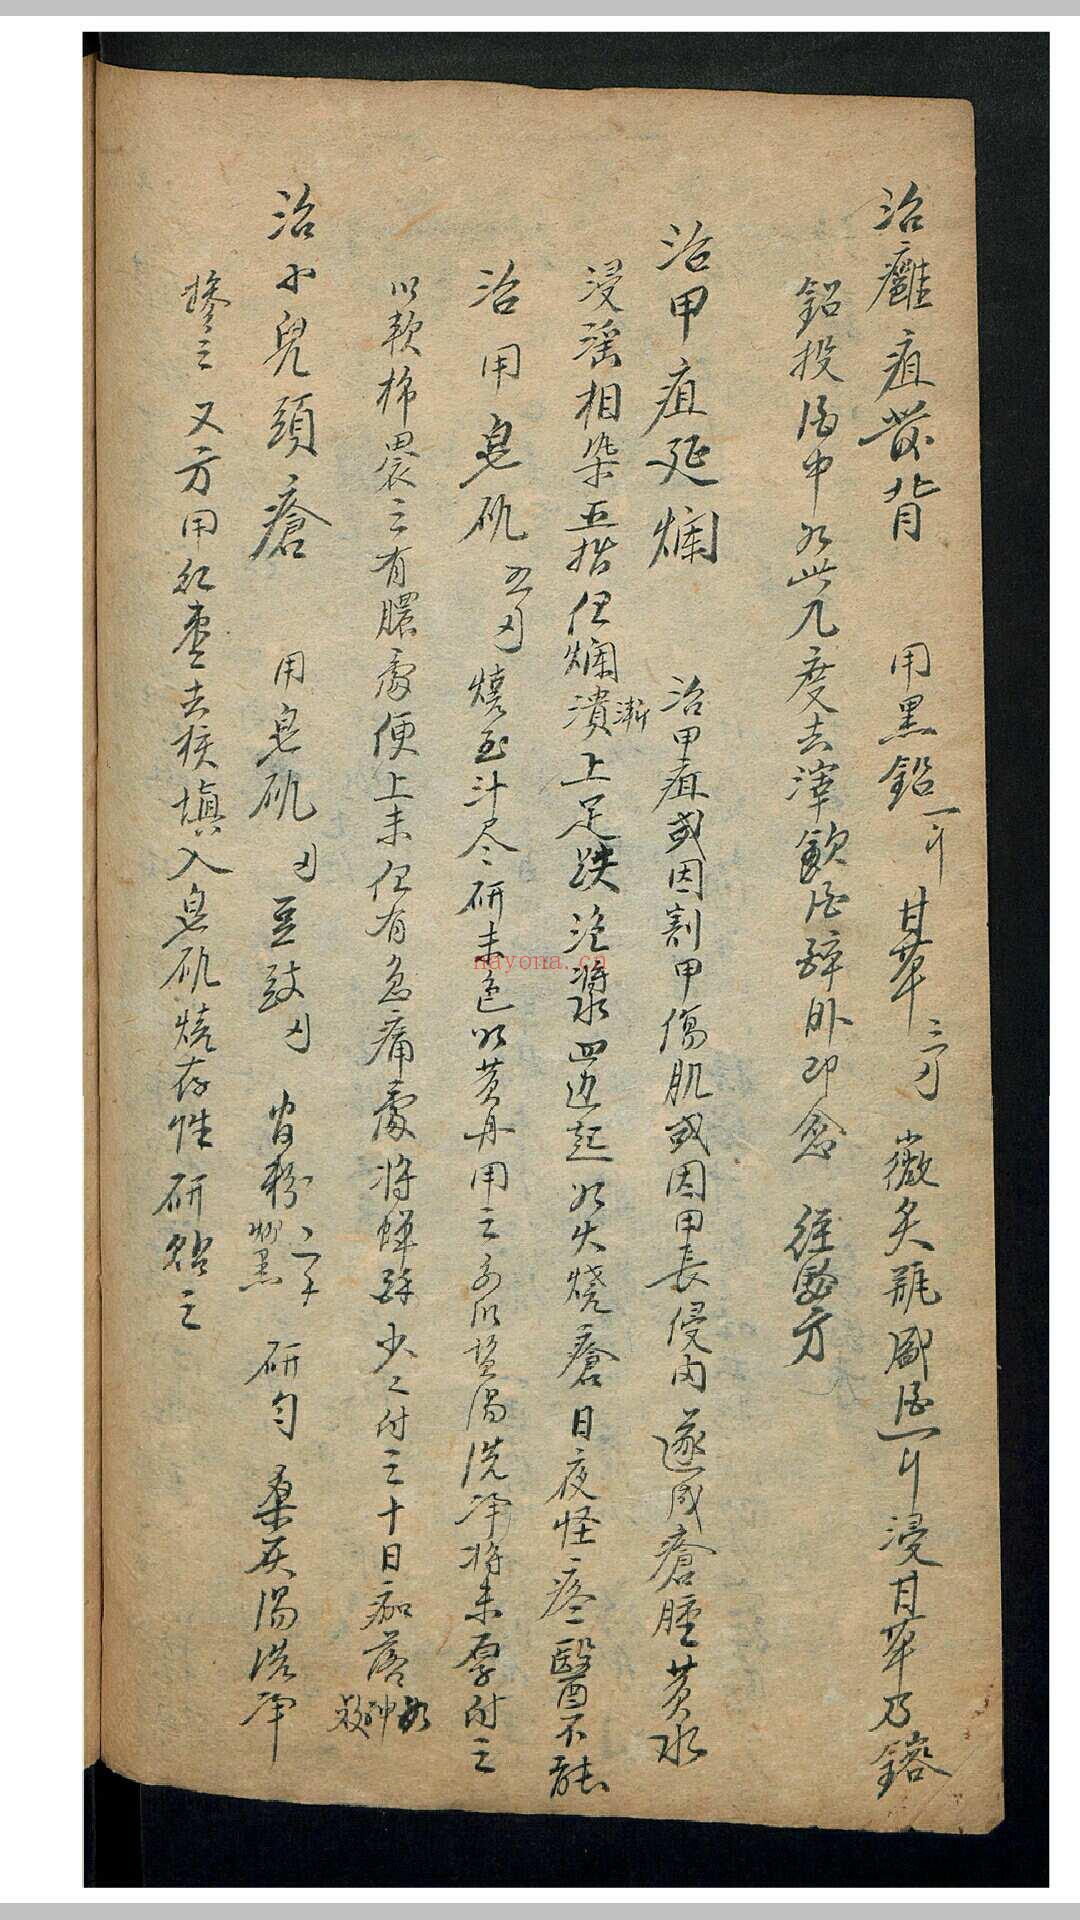 治癰疽發背 用黑鉛一斤 甘草三刄 微炙瓶盛酒一斤浸甘草乃鎔
鉛投酒中如此几度去滓飲酒醉卧即愈 經驗方
治甲疽延爛 治甲疽或因割甲傷肌或因甲長侵肉遂成瘡腫黄水
浸淫相染五指但爛漸潰上足趺泡漿四邉起如火燒瘡日夜怪疼醫不能
治用皂矾五刄燒至汁尽研末色如黄丹用之先以盐湯洗净將末厚付之
以軟棉裹之有膿處便上末但有急痛處將蟬酥少々付之十日痂落如神效
治小兒頭瘡 用皂矾刄豆豉刄 官粉二子 研匀桑灰湯洗净
摻之 又方用红枣去核填入皂矾燒存性研貼之
nayona.cn